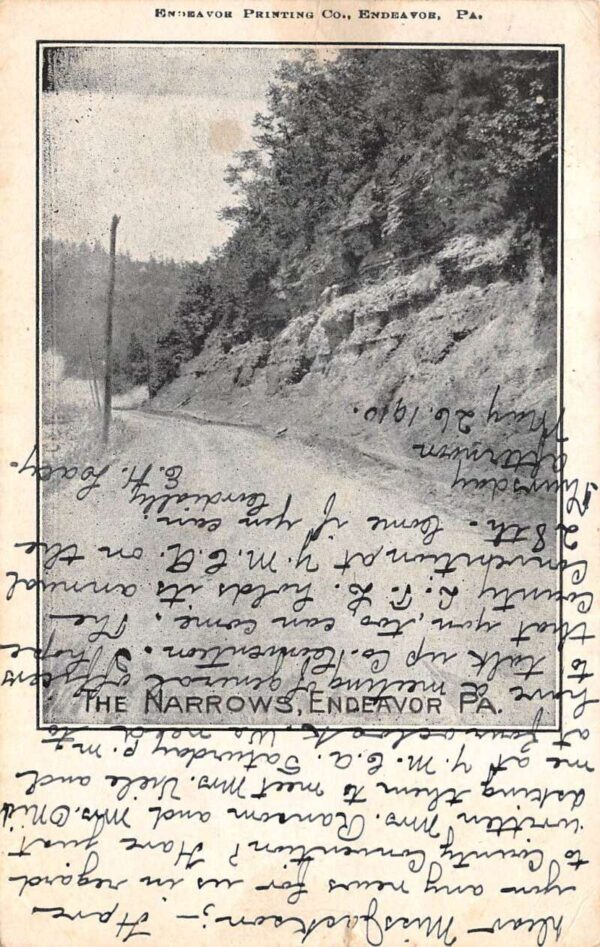 ENDEAVOR PRINTING CO., ENDEAVOR, PA.
THE NARROWS, ENDEAVOR PA.
Dear Miss Jackson;- Have
you any news for us in regard
to County Convention? Have just
written Mrs. Ransom and Mrs.
asking them to meet Mrs. Viele and
me at Y.M.C.A. Saturday p.m.
at four oclock. We need to
have a meeting of general officers
to talk up Co. Convention. I hope
that you, too can come. The
County L.T.L. holds its annual
convention at Y.M.C.A. on the
28th. Come if you can.
Thursday Cordially
afternoon E. H. Lacey.
May 26, 1910.